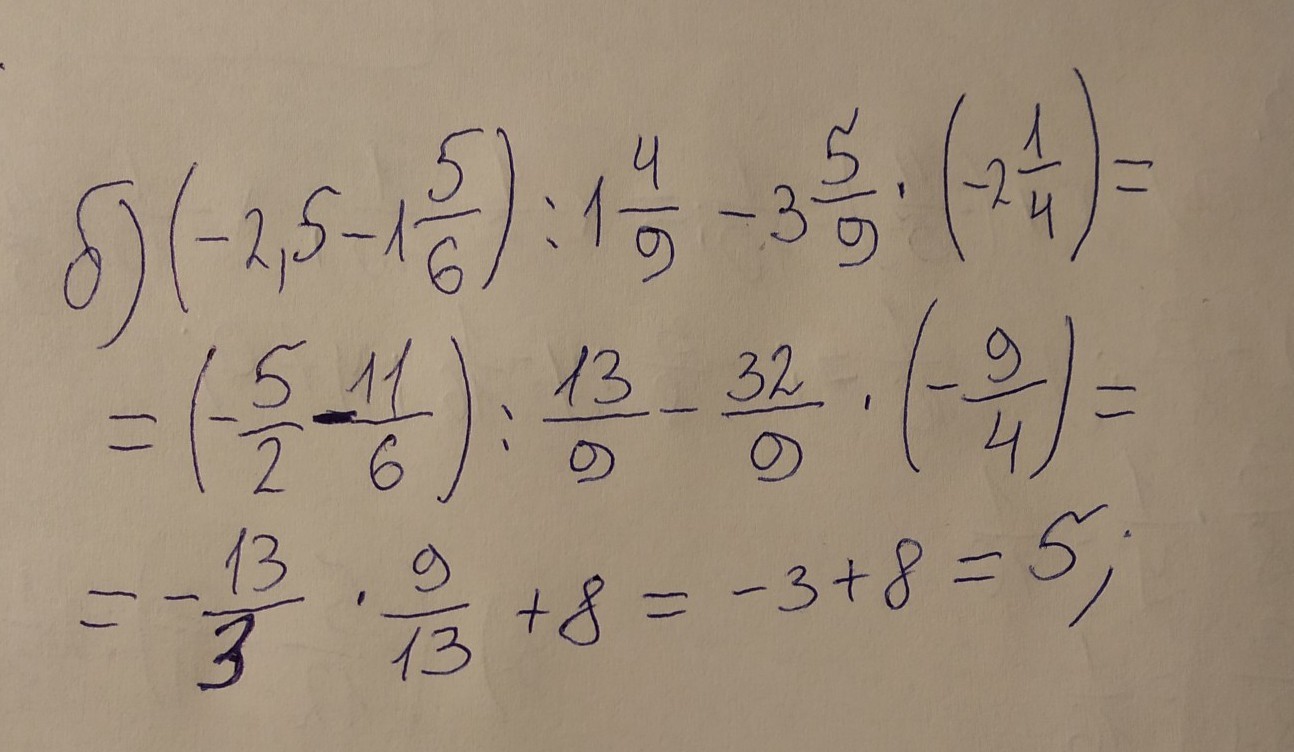 б) (-2,5-1 5/6) : 1 4/9 - 3 5/9 · (-2 1/4) =
= (-5/2 - 11/6) : 13/9 - 32/9 · (-9/4) =
= -13/3 · 9/13 + 8 = -3 + 8 = 5;